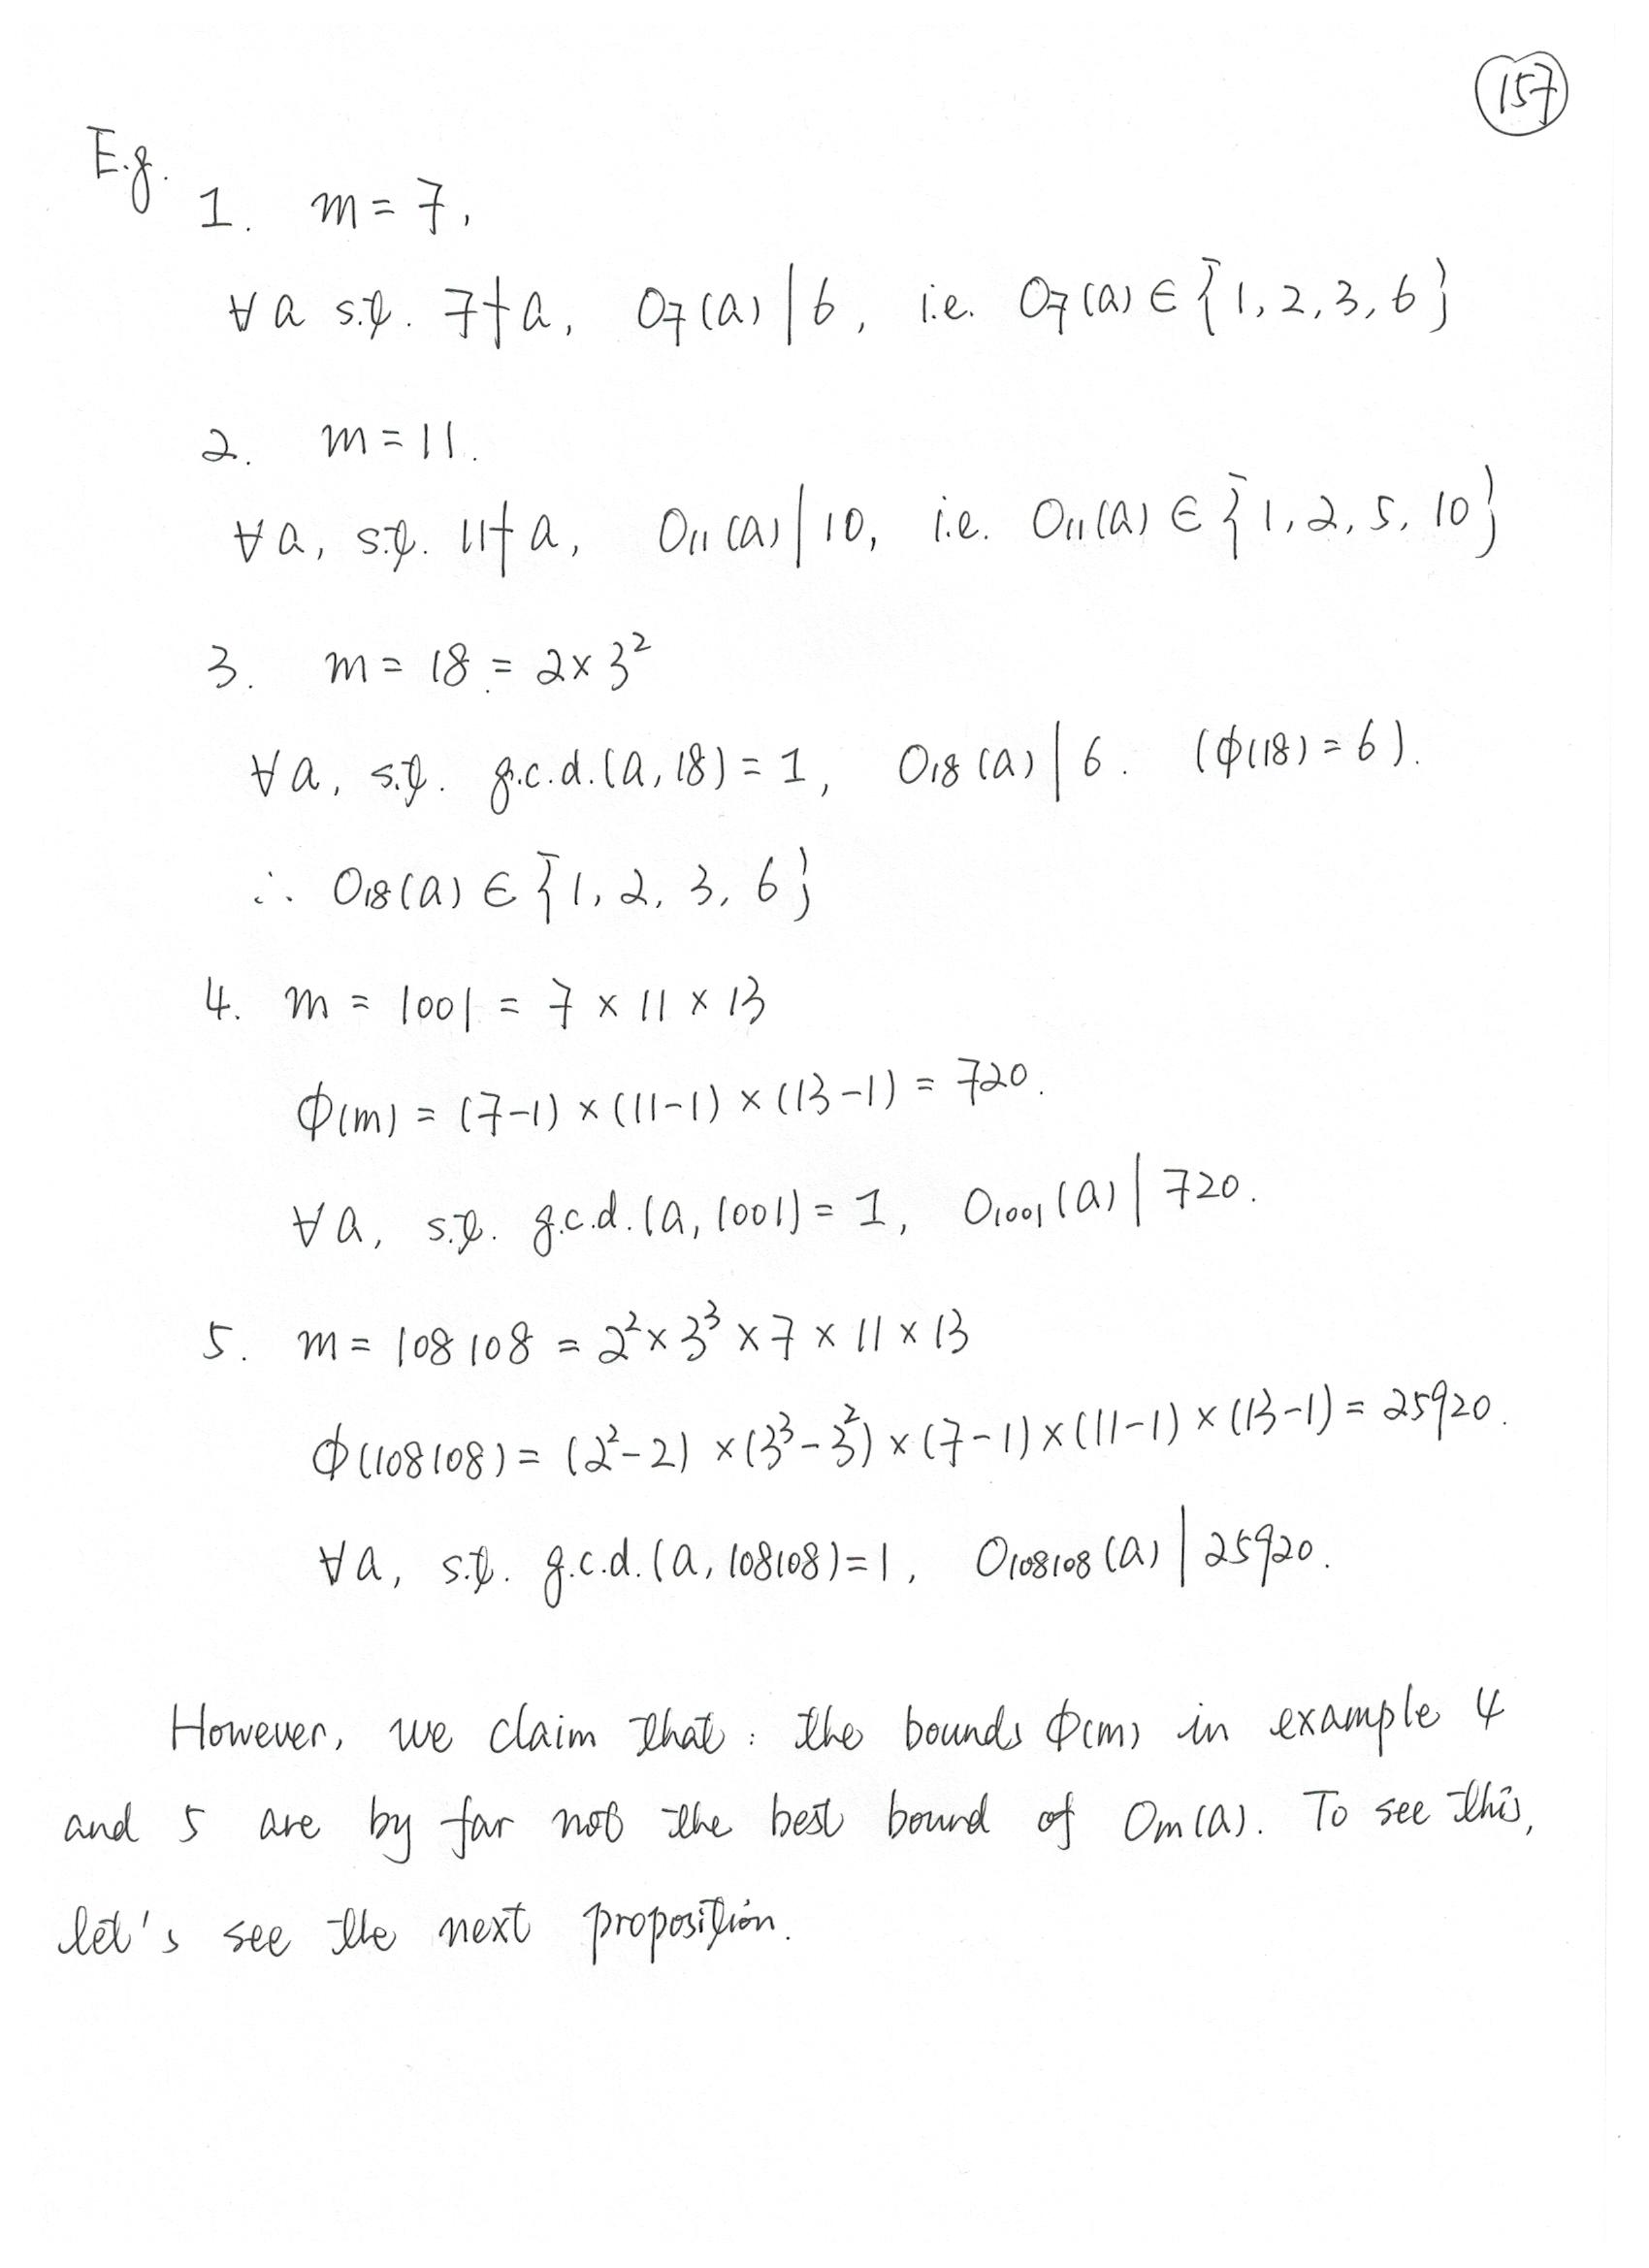 157
E.g.
1. m = 7,
∀a s.t. 7∤a, O₇(a) | 6, i.e. O₇(a) ∈ {1, 2, 3, 6}
2. m = 11.
∀a, s.t. 11∤a, O₁₁(a) | 10, i.e. O₁₁(a) ∈ {1, 2, 5, 10}
3. m = 18 = 2×3²
∀a, s.t. g.c.d.(a, 18) = 1, O₁₈(a) | 6. (ϕ(18) = 6).
∴ O₁₈(a) ∈ {1, 2, 3, 6}
4. m = 1001 = 7 × 11 × 13
ϕ(m) = (7-1) × (11-1) × (13-1) = 720.
∀a, s.t. g.c.d.(a, 1001) = 1, O₁₀₀₁(a) | 720.
5. m = 108108 = 2² × 3³ × 7 × 11 × 13
ϕ(108108) = (2²-2) × (3³-3²) × (7-1) × (11-1) × (13-1) = 25920.
∀a, s.t. g.c.d.(a, 108108) = 1, O₁₀₈₁₀₈(a) | 25920.
However, we claim that : the bounds ϕ(m) in example 4
and 5 are by far not the best bound of Om(a). To see this,
let's see the next proposition.